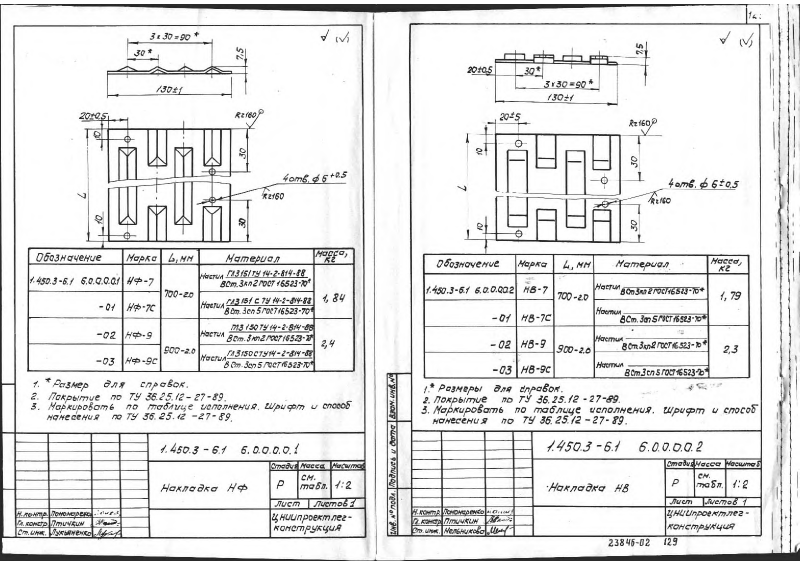 3×30=90*
30*
7,5
130±1
20±0,5
Rz160
10
30
L
4 отв. ф 6 +0,5
Rz160
10
30
Обозначение Марка L, мм Материал Масса, кг
1.450.3-6.1 6.0.0.0.01 НФ-7 700-2.0 Настил 1,84
В Ст. 3кп2 ГОСТ 16523-70*
-01 НФ-7С Настил
В Ст. 3сп5 ГОСТ 16523-70*
-02 НФ-9 900-2.0 Настил 2,4
В Ст. 3кп2 ГОСТ 16523-70*
-03 НФ-9С Настил
В Ст. 3сп5 ГОСТ 16523-70*
1. * Размер для справок.
2. Покрытие по ТУ 36.25.12-27-89.
3. Маркировать по таблице исполнения. Шрифт и способ
нанесения по ТУ 36.25.12-27-89.
1.450.3-6.1 6.0.0.0.0.1
Накладка НФ
Стадия Масса Масштаб
Р см. табл. 1:2
Лист Листов 1
ЦНИИпроектлег-
конструкция
Н.контр. Пономаренко
Гл. констр. Птичкин
Ст. инж. Лукьяненко
7,5
20±0,5
30*
3×30=90*
130±1
20±5
Rz160
10
30
L
4 отв. ф 6±0,5
Rz160
10
30
Обозначение Марка L, мм Материал Масса, кг
1.450.3-6.1 6.0.0.0.0.2 НВ-7 700-2.0 Настил 1,79
В Ст. 3кп2 ГОСТ 16523-70*
-01 НВ-7С Настил
В Ст. 3сп5 ГОСТ 16523-70*
-02 НВ-9 900-2.0 Настил 2,3
В Ст. 3кп2 ГОСТ 16523-70*
-03 НВ-9С Настил
В Ст 3сп5 ГОСТ 16523-70*
1.* Размеры для справок.
2. Покрытие по ТУ 36.25.12-27-89.
3. Маркировать по таблице исполнения. Шрифт и способ
нанесения по ТУ 36.25.12-27-89.
Инв. № подл. Подпись и дата Взам. инв. №
1.450.3-6.1 6.0.0.0.0.2
Накладка НВ
Стадия Масса Масштаб
Р см. табл. 1:2
Лист Листов 1
ЦНИИпроектлег-
конструкция
Н.контр. Пономаренко
Гл. констр. Птичкин
Ст. инж. Мельникова
23846-02 129